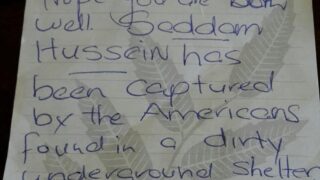 hope you are both
well. Saddam
Hussein has
been captured
by the Americans
found in a dirty
underground shelter